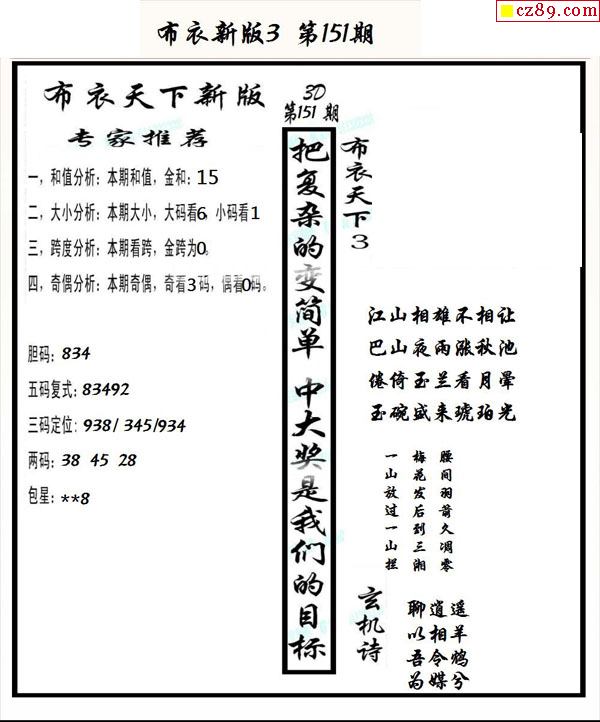 cz89.com
布衣新版3 第151期
布衣天下新版
专家推荐
一，和值分析：本期和值，金和：15
二，大小分析：本期大小，大码看6，小码看1
三，跨度分析：本期看跨，金跨为0。
四，奇偶分析：本期奇偶，奇看3码，偶看0码。
胆码：834
五码复式：83492
三码定位：938/ 345/934
两码：38 45 28
包星：**8
3D
第151期
把复杂的变简单 中大奖是我们的目标
布衣天下3
江山相雄不相让
巴山夜雨涨秋池
倦倚玉兰看月晕
玉碗盛来琥珀光
腰间羽箭久凋零
梅花发后到三湘
一山放过一山拦
玄机诗
聊逍遥
以相羊
吾令鸩
为媒兮